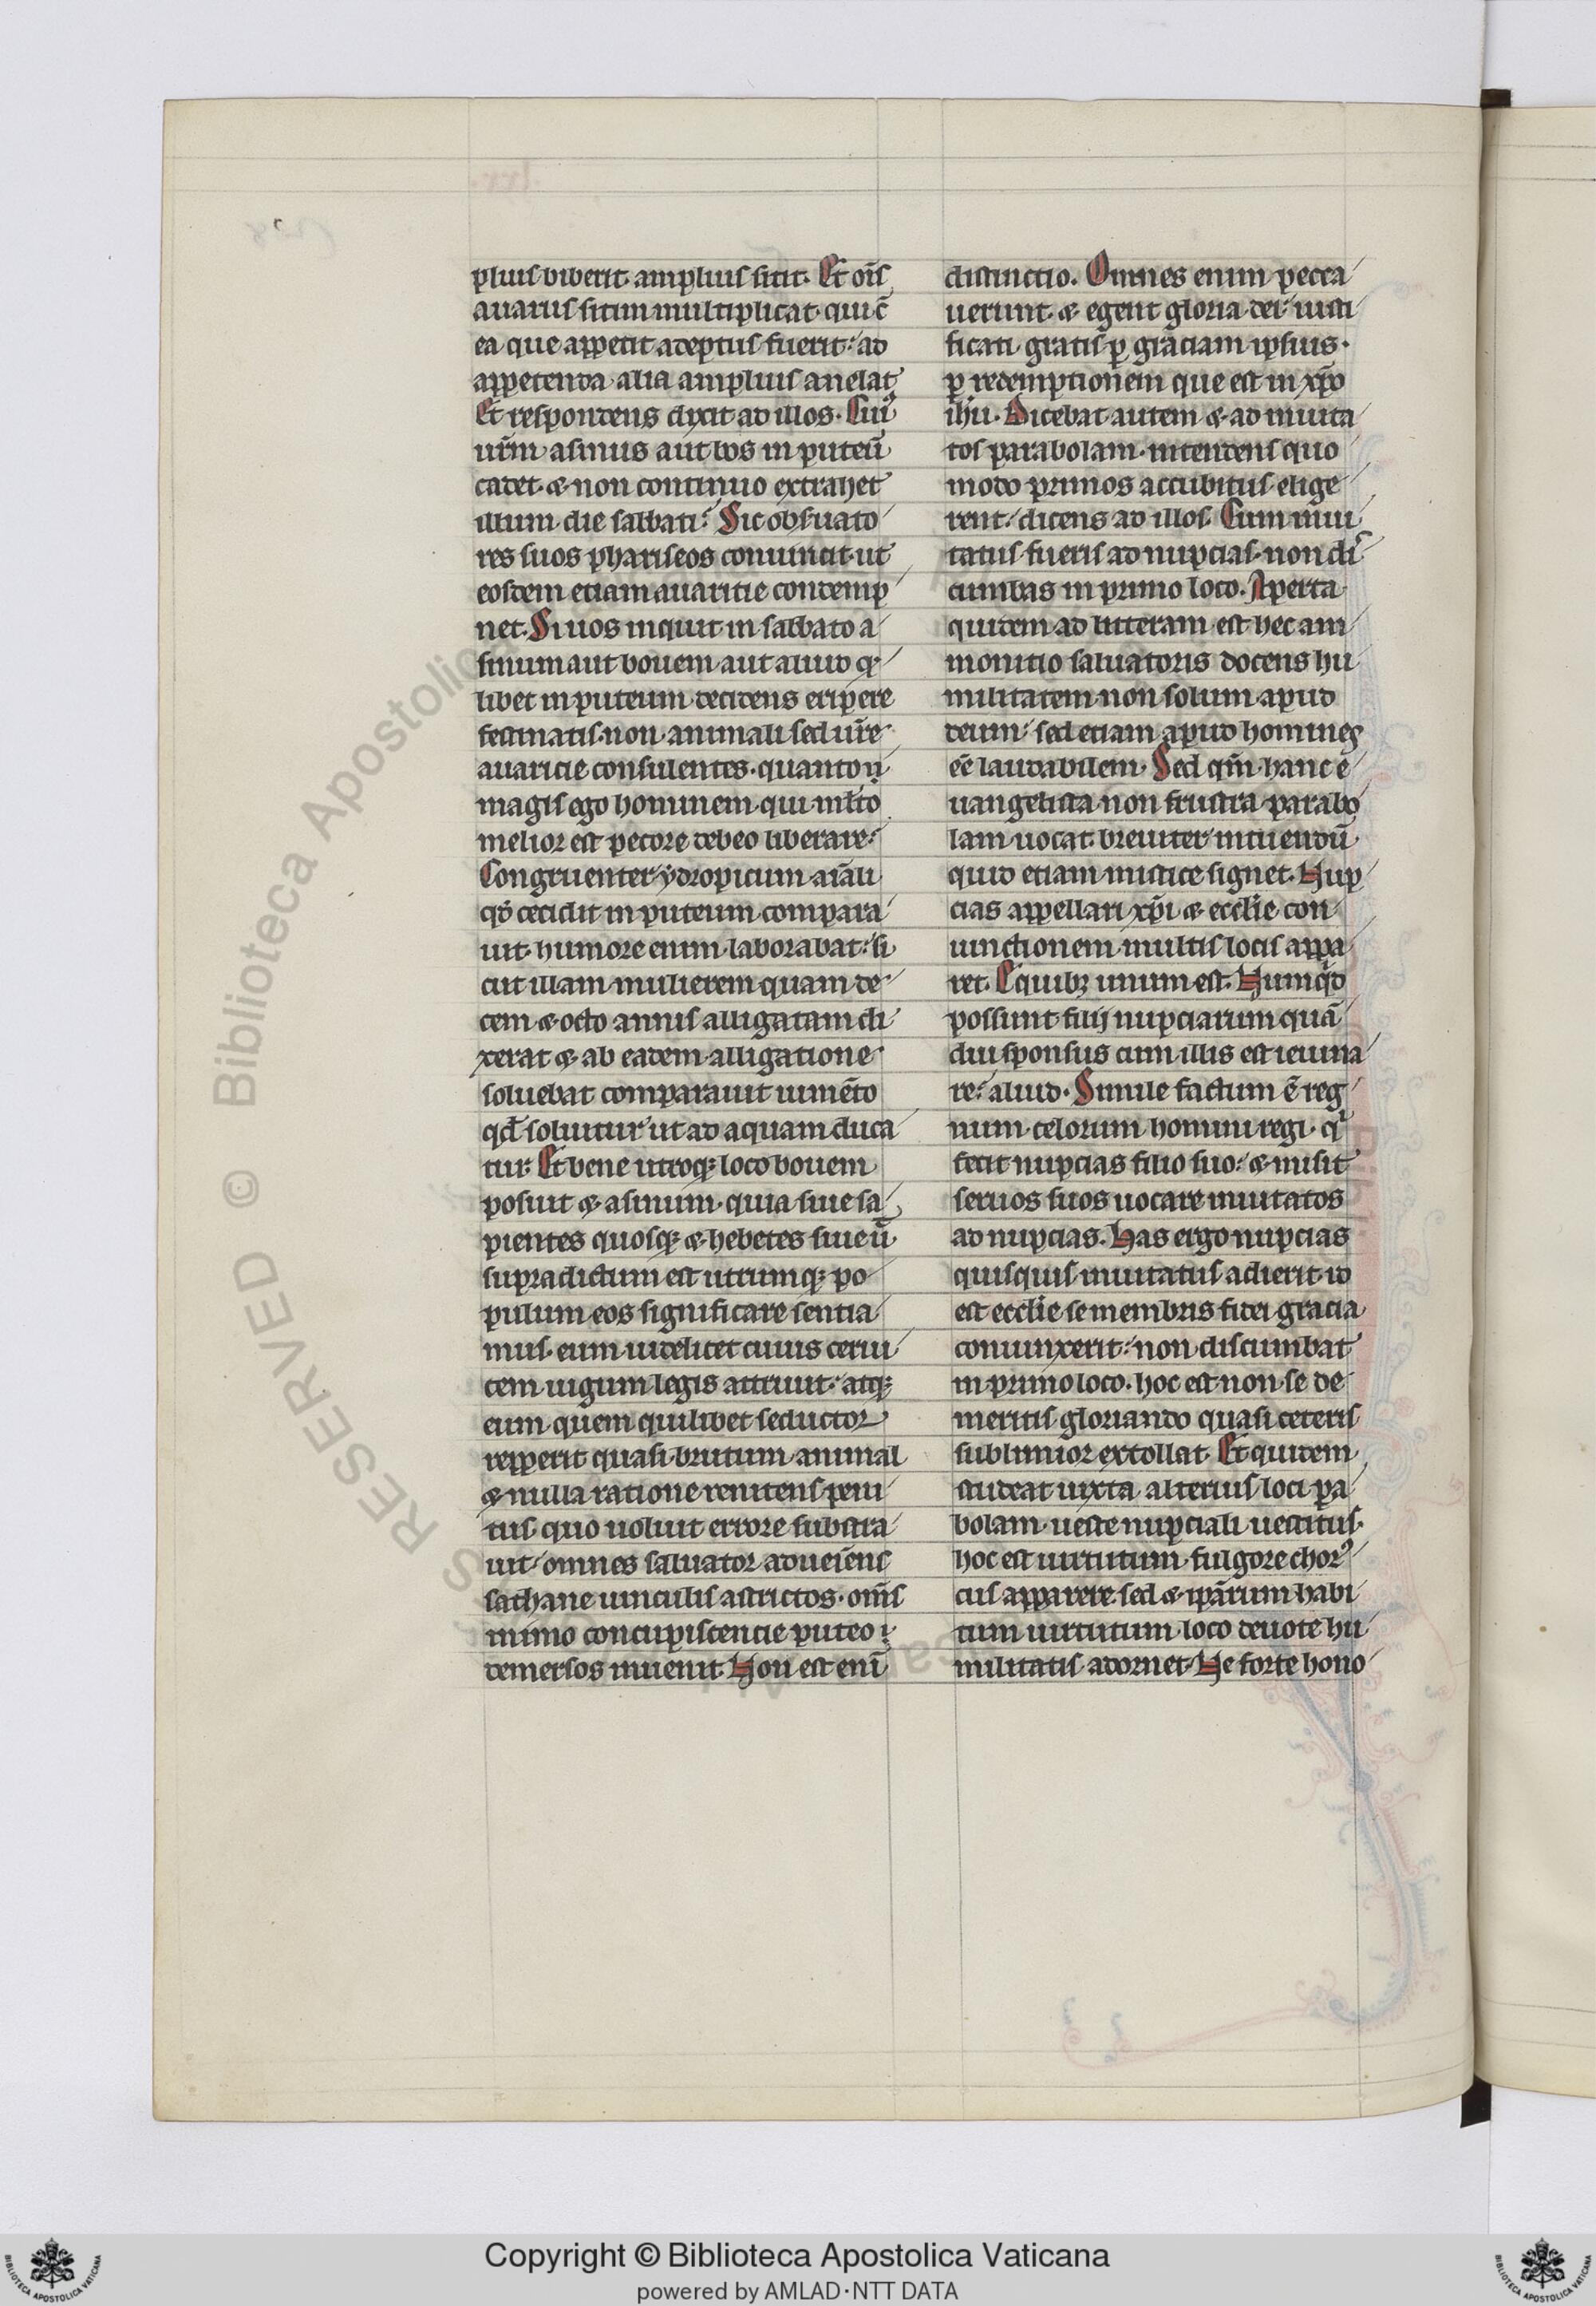 plius biberit amplius sitit. Et oīs
auarus sitim multiplicat. qui cͫ
ea que appetit adeptus fuerit: ad
appetenda alia amplius anelat
Et respondens dixit ad illos. Cuiꝰ
ur̄m asinus aut bos in puteū
cadet. ⁊ non continuo extrahet
illum die sabbati? Sic obẜuato
res suos phariseos conuincit. ut
eosdem etiam auaritie condemp
net. Si uos inquit in sabbato a
sinum aut bouem aut aliud qͦd
libet in puteum decidens eripere
festinatis. non animali sed ur̄e
auaricie consulentes. quanto
magis ego hominem qui ml̄to
melior est pecore debeo liberare?
Congruenter ydropicum aīali
qd̄ cecidit in puteum compara
uit. humore enim laborabat: si
cut illam mulierem quam de
cem ⁊ octo annis alligatam di
xerat ⁊ ab eadem alligatione
soluebat comparauit iumēto
qd̄ soluitur ut ad aquam duca
tur. Et bene utroqꝫ loco bouem
posuit ⁊ asinum. quia siue sa
pientes quosqꝫ ⁊ hebetes siue ū
supradictum est utrumqꝫ po
pulum eos significare sentia
mus. eum uidelicet cuius cerui
cem iugum legis attriuit. atqꝫ
eum quem quilibet seductor
repperit quasi brutum animal
⁊ nulla ratione renitens peni
tus quo uoluit errore substra
uit. omnes saluator adueiens
sathane uinculis astrictos. om̄s
in imo concupiscencie puteo
demersos inuenit. Non est enī
distinctio. Omnes enim pecca
uerunt. ⁊ egent gloria dei. iusti
ficati gratis ꝑ graciam ipsius.
ꝑ redemptionem que est in xp̄o
ih̄u. Dicebat autem ⁊ ad inuita
tos parabolam. intendens quo
modo primos accubitus elige
rent. dicens ad illos. Cum inui
tatus fueris ad nupcias. non dis
cumbas in primo loco. Aperta
quidem ad litteram est hec am
monitio saluatoris docens hu
militatem non solum apud
deum. sed etiam apud homines
eē laudabilem. Sed qm̄ hanc e
uangelista non frustra parabo
lam uocat. breuiter intuendū
quid etiam mistice signet. Nup
cias appellari xp̄i ⁊ eccl̄ie con
iunctionem multis locis appa
ret. E quibꝫ unum est. Numqͥd
possunt filij nupciarum quā
diu sponsus cum illis est ieiuna
re? aliud. Simile factum ē reg
num celorum homini regi. qͥ
fecit nupcias filio suo. ⁊ misit
seruos suos uocare inuitatos
ad nupcias. Has ergo nupcias
quisquis inuitatus adierit. id
est eccl̄ie se membris fidei gracia
coniunxerit. non discumbat
in primo loco. hoc est non se de
meritis gloriando quasi ceteris
sublimior extollat. Et quidem
studeat iuxta alterius loci pa
bolam. ueste nupciali uestitus.
hoc est uirtutum fulgore chorꝰ
cus apparere. sed ⁊ ip̄arum habi
tum uirtutum loco deuote hu
militatis adornet. Ne forte hono
Copyright © Biblioteca Apostolica Vaticana
powered by AMLAD·NTT DATA